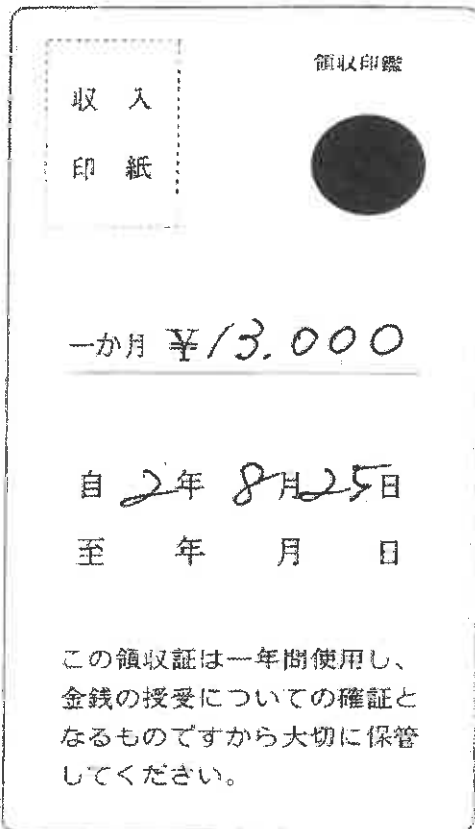 収入
印紙
領収印鑑
一か月 ¥13.000
自 2年 8月25日
至 年 月 日
この領収証は一年間使用し、
金銭の授受についての確証と
なるものですから大切に保管
してください。